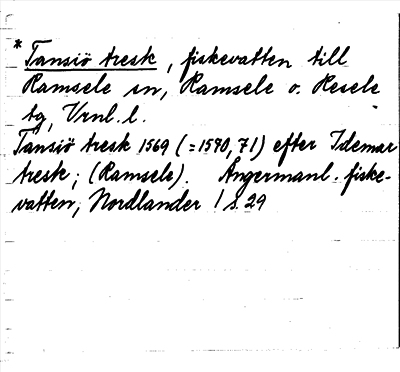 * Tansiö tresk, fiskevatten till
Ramsele sn, Ramsele o. Resele
tg, Vrnl. l.
Tansiö tresk 1569 (=1570, 71) efter Idemar
tresk; (Ramsele). Ångermanl. fiske-
vatten, Nordlander 1 s. 29